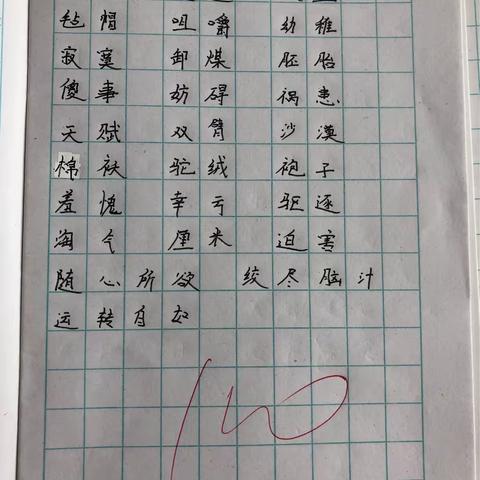 毡帽 咀嚼 幼稚
寂寞 卸煤 胚胎
傻事 妨碍 祸患
天赋 双臂 沙漠
棉袄 驼绒 袍子
羞愧 幸亏 驱逐
淘气 厘米 迫害
随心所欲 绞尽脑汁
运转自如
100